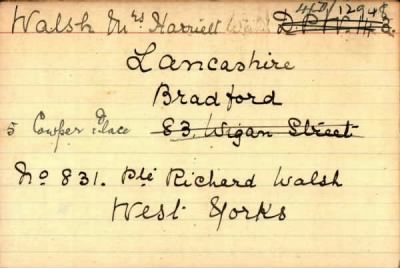 Walsh Mrs Harriett 4/D/12948
Lancashire
Bradford
5 Cowper Place 83. Wigan Street
No 831. Pte Richard Walsh
West Yorks